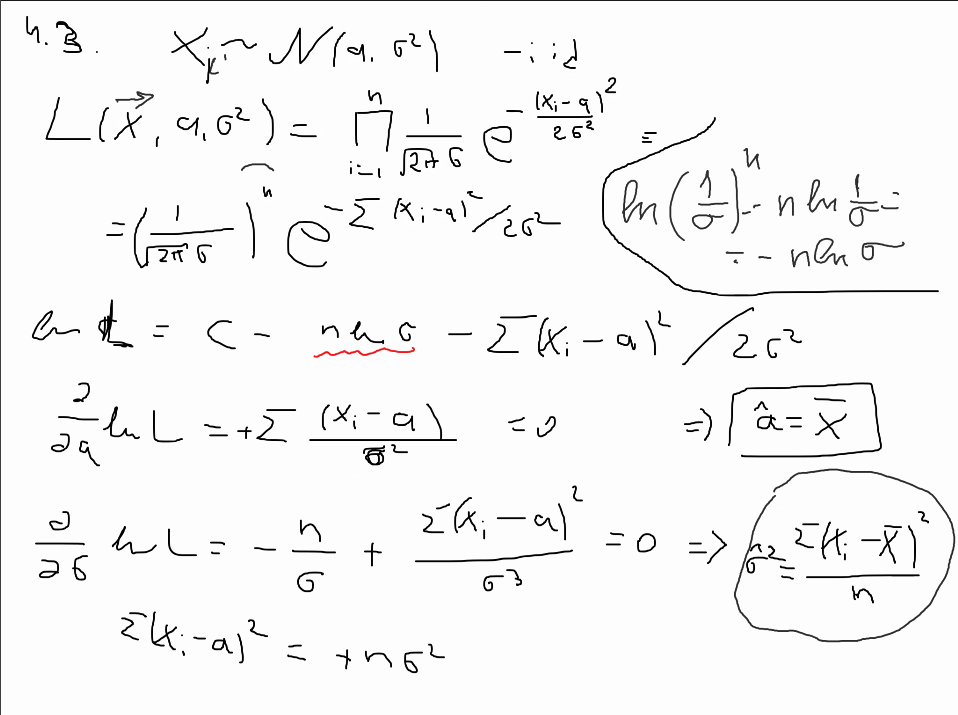 4.3. X_i ~ N(a, σ²) - iid
L(X⃗, a, σ²) = ∏_{i=1}^{n} 1/(√2π σ) e^{-(x_i - a)²/2σ²} =
= (1/(√2π σ))^n e^{-Σ(x_i - a)²/2σ²}
ln(1/σ)^n = n ln 1/σ =
= - n ln σ
ln L = C - n ln σ - Σ(x_i - a)²/2σ²
∂/∂a ln L = +Σ (x_i - a)/σ² = 0 ⇒ â = X̄
∂/∂σ ln L = - n/σ + Σ(x_i - a)²/σ³ = 0 ⇒ σ̂² = Σ(x_i - x̄)²/n
Σ(x_i - a)² = + nσ²